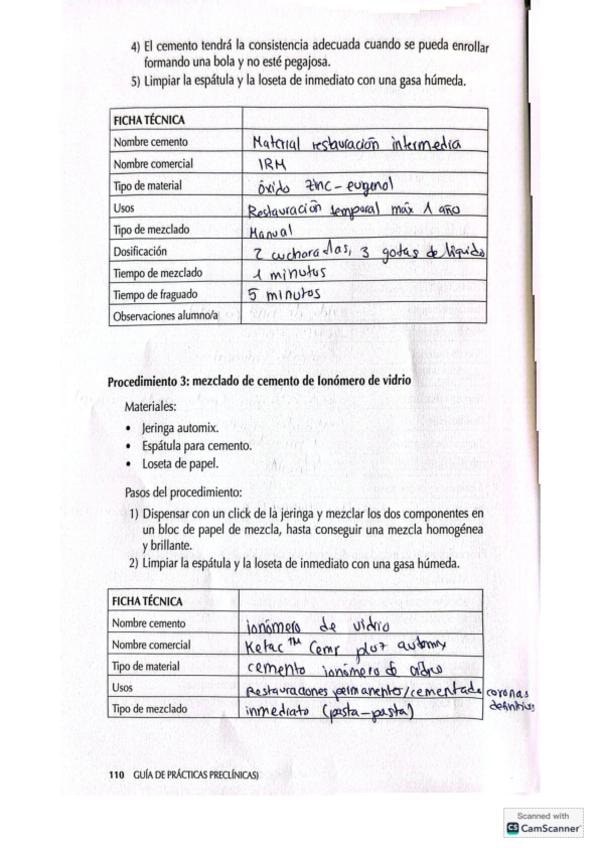 4) El cemento tendrá la consistencia adecuada cuando se pueda enrollar
formando una bola y no esté pegajosa.
5) Limpiar la espátula y la loseta de inmediato con una gasa húmeda.
FICHA TÉCNICA
Nombre cemento Material restauración intermedia
Nombre comercial IRM
Tipo de material óxido zinc-eugenol
Usos Restauración temporal máx 1 año
Tipo de mezclado Manual
Dosificación 2 cucharadas, 3 gotas de líquido
Tiempo de mezclado 1 minutos
Tiempo de fraguado 5 minutos
Observaciones alumno/a
Procedimiento 3: mezclado de cemento de Ionómero de vidrio
Materiales:
• Jeringa automix.
• Espátula para cemento.
• Loseta de papel.
Pasos del procedimiento:
1) Dispensar con un click de la jeringa y mezclar los dos componentes en
un bloc de papel de mezcla, hasta conseguir una mezcla homogénea
y brillante.
2) Limpiar la espátula y la loseta de inmediato con una gasa húmeda.
FICHA TÉCNICA
Nombre cemento ionómero de vidrio
Nombre comercial Ketac™ Cem
Tipo de material cemento ionómero d vidrio
Usos Restauraciones /cementado coronas
definitivas
Tipo de mezclado inmediato (pasta-pasta)
110 GUÍA DE PRÁCTICAS PRECLÍNICAS)
Scanned with
CS CamScanner